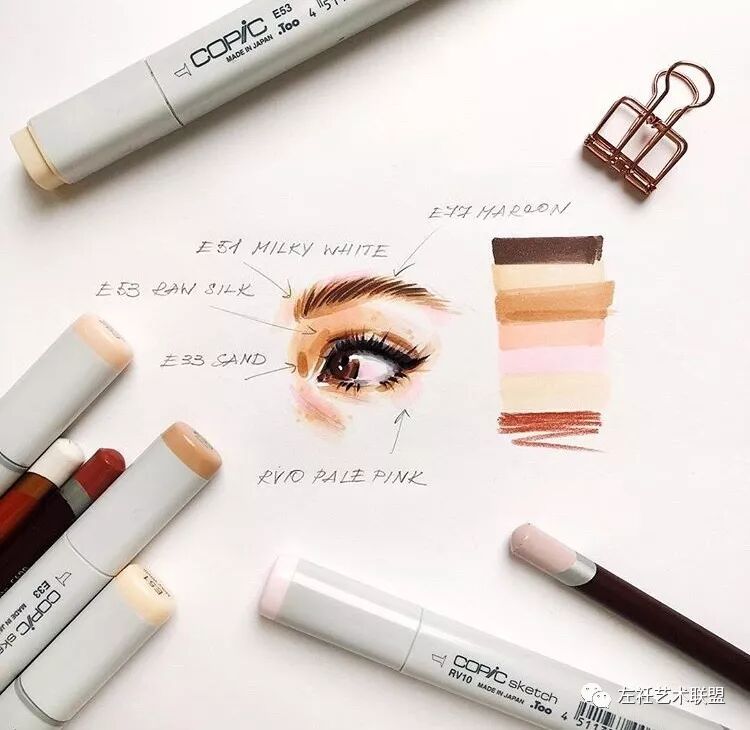 COPIC E53
MADE IN JAPAN .Too 4 511
E77 MAROON
E51 MILKY WHITE
E53 RAW SILK
E33 SAND
RV10 PALE PINK
E51
E33
MADE IN JA
COPIC ske
COPIC sketch
RV10 MADE IN JAPAN .Too 4 511
左衽艺术联盟